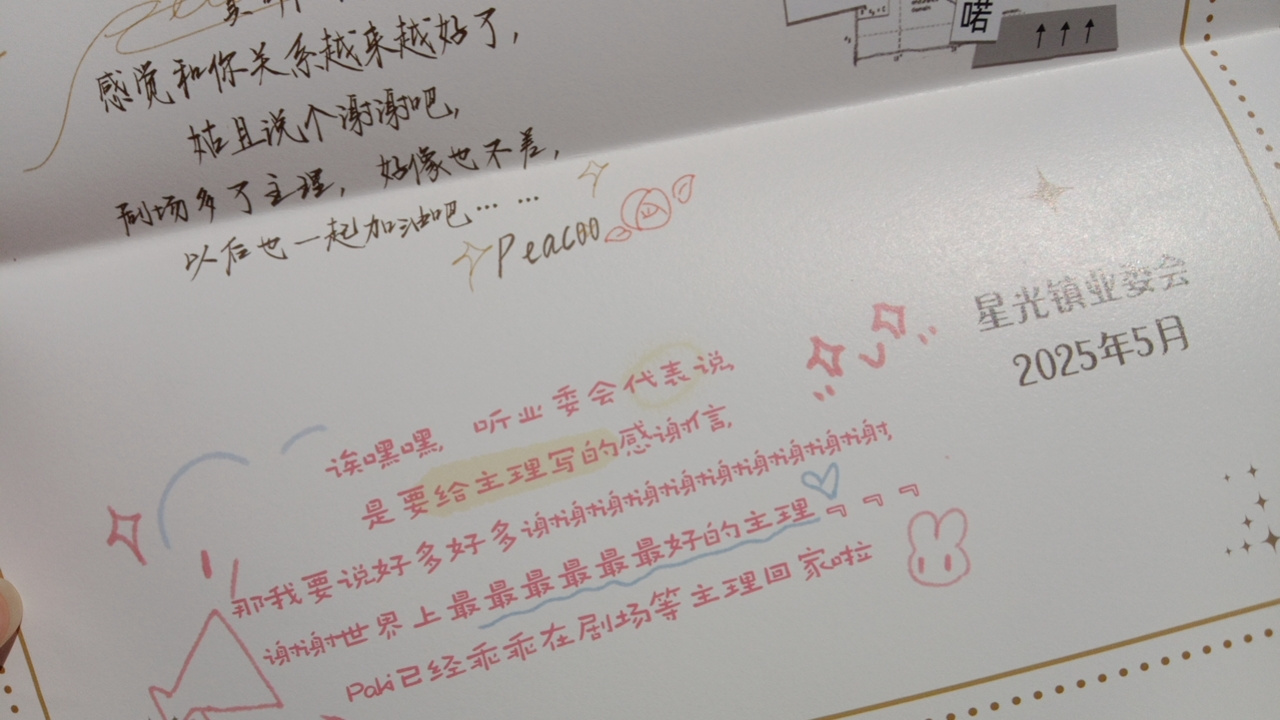 喏
感觉和你关系越来越好了,
姑且说个谢谢吧,
剧场多了主理, 好像也不差,
以后也一起加油吧… …
Peacoo
星光镇业委会
2025年5月
诶嘿嘿, 听业委会代表说
是要给主理写的感谢信,
那我要说好多好多谢谢谢谢谢谢谢谢谢谢谢谢谢,
谢谢世界上最最最最最最好的主理
Paki已经乖乖在剧场等主理回家啦